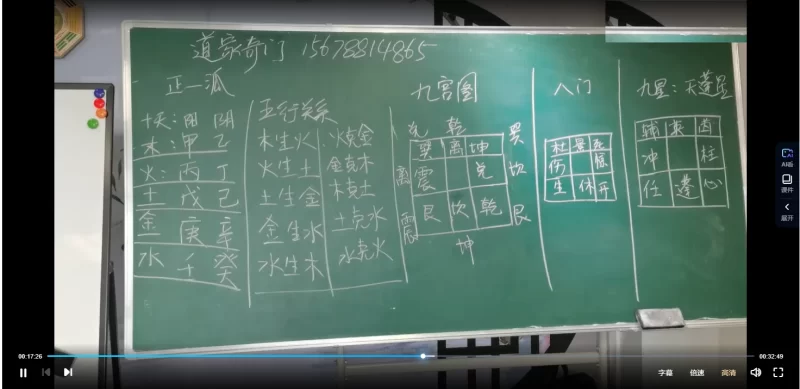 道家奇门 15678814865
正一派
十天: 阳 阴
木: 甲 乙
火: 丙 丁
土 戊 己
金 庚 辛
水 壬 癸
五行关系
木生火 火克金
火生土 金克木
土生金 木克土
金生水 土克水
水生木 水克火
九宫图
兑 乾 巽
离 坎
震 艮
坤
巽 离 坤
震 兑
艮 坎 乾
八门
杜 景 死
伤 惊
生 休 开
九星: 天蓬星
辅 英 芮
冲 柱
任 蓬 心
AI版
课件
展开
00:17:26
00:32:49
字幕 倍速 高清